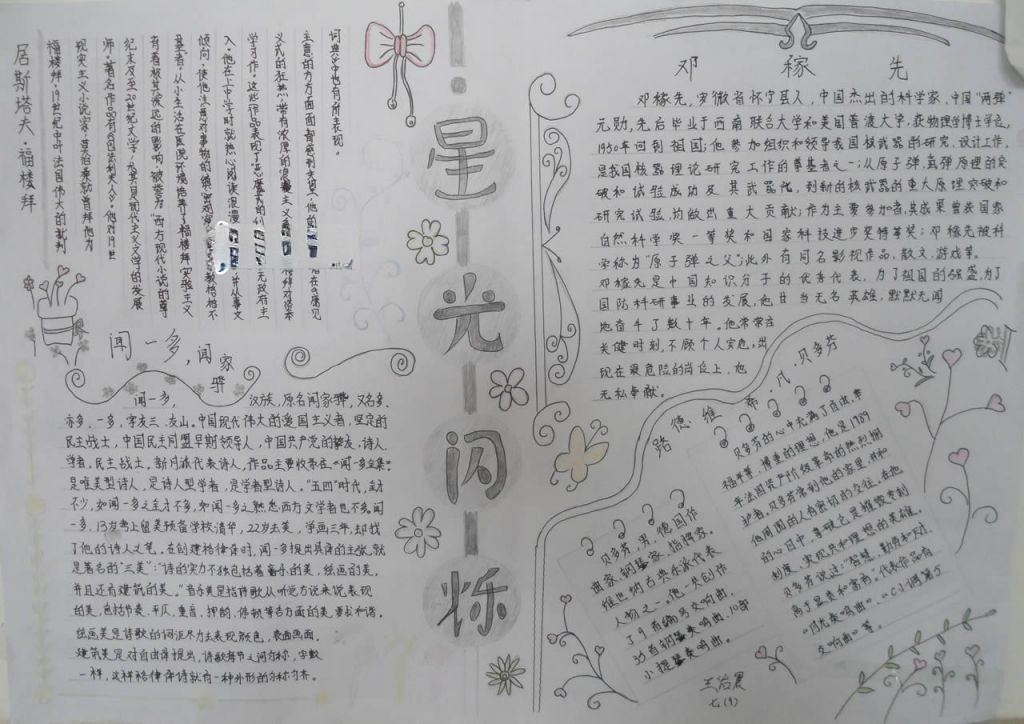 居斯塔夫·福楼拜
福楼拜,19世纪中叶法国伟大的批判
现实主义小说家,莫泊桑就曾拜他为
师,著名作品有《包法利夫人》。他对19世
纪末及至20世纪文学,尤其是现代主义文学的发展
有着极其深远的影响,被誉为“西方现代小说的尊
基者”,从小生活在医院环境培养了福楼拜实验主义
倾向,使他注意对事物的
入。他在上中学时就热心阅读浪漫 并从事文
学习作。这些作品表现了 无政府主
义式的狂热,带有浓厚的浪漫主义
主意的方方面面都感到失望,他的
词典》中也有所表现。
星光闪烁
闻一多,闻家骅
闻一多, 汉族,原名闻家骅,又名多、
亦多、一多,字友三、友山。中国现代伟大的爱国主义者,坚定的
民主战士,中国民主同盟早期领导人,中国共产党的挚友,诗人、
学者,民主战士。新月派代表诗人,作品主要收录在《闻一多全集》
是唯美型诗人,是诗人型学者,是学者型诗人。“五四”时代,全才
不少,如闻一多之全才不多,如闻一多之熟悉西方文学者也不多,闻
一多,13岁考上留美预备学校清华,22岁去美,学画三年,却找
了他的诗人之笔。在创建格律诗时,闻一多提出具体的主张,就
是著名的“三美”:“诗的实力不独包括着音乐的美,绘画的美,
并且还有建筑的美。”音乐美是指诗歌从听觉方说来说表现
的美,包括节奏、平仄、重音、押韵、停顿等各方面的美,要求和谐。
绘画美是诗歌的词汇尽力去表现颜色,表面画面。
建筑美是对自由体提出,诗歌每节之间匀称,字数
一样,这样格律体诗就有一种外形的匀称匀齐。
邓稼先
邓稼先,安徽省怀宁县人,中国杰出的科学家,中国“两弹”
元勋,先后毕业于西南联合大学和美国普渡大学,获物理学博士学位,
1950年回到祖国;他参加组织和领导我国核武器的研究、设计工作,
是我国核器理论研究工作的尊基者之一;从原子弹、氢弹原理的突
破和试验成功及其武器化,到新的核武器的重大原理突破和
研究试验,均做出重大贡献;作为主要参加者,其成果曾获国家
自然科学奖一等奖和国家科技进步奖特等奖;邓稼先被科
学称为“原子弹之父”;此外有同名影视作品、散文、游戏等。
邓稼先是中国知识分子的优秀代表,为了祖国的强盛,为了
国防科研事业的发展,他甘当无名英雄,默默无闻
地奋斗了数十年。他常常在
关键时刻,不顾个人安危,出
现在最危险的岗位上,他
无私奉献。
路德维希·凡·贝多芬
贝多芬,男,德国作
曲家、钢琴家、指挥家。
维也纳古典乐派代表
人物之一。他一共创作
了9首编号交响曲、
35首钢琴奏鸣曲、10部
小提琴奏鸣曲。
贝多芬的心中充满了自由、幸
福平等、博爱的理想,他是1789
年法国资产阶级革命的热烈拥
护者,贝多芬常到他的家里,并和
他周围的人有密切的交往。在他
的心目中,拿破仑是摧毁专制
制度、实现共和理想的英雄。
贝多芬说过:“智慧、勤劳和天才,
高于显贵和富有。”代表作品有
《月光奏鸣曲》、《C小调第5
交响曲》等。
七(9)